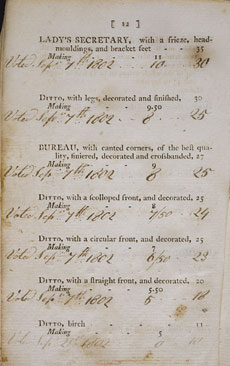 [ 12 ]
LADY'S SECRETARY, with a frieze, head-
mouldings, and bracket feet - - 35
Making
Voted Sepr. 7th 1802 - 10 30
DITTO, with legs, decorated and finished, 30
Making - - 9.50
Voted Sepr. 7th 1802 - 8 25
BUREAU, with canted corners, of the best qua-
lity, finiered, decorated and crossbanded, 27
Making - - 9
Voted Sepr. 7th 1802 - 8 25
DITTO, with a scolloped front, and decorated, 25
Making - - 8
Voted Sepr. 7th 1802 7/50 24
DITTO, with a circular front, and decorated, 25
Making - - 7
Voted Sepr. 7th 1802 6/50 23
DITTO, with a straight front, and decorated, 20
Making - - 5.50
Voted Sepr. 7th 1802 5 18
DITTO, birch - - 11
Making - - 5